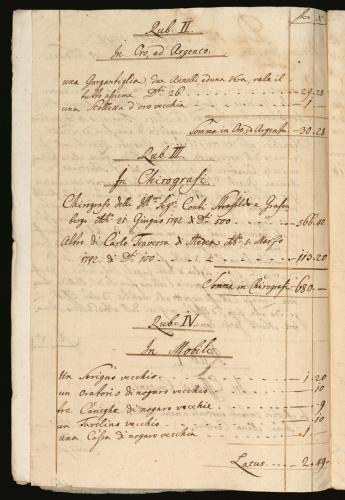 Rub: II
In Oro, ed Argento.
una Gargantiglia due Annelli, ed una Vera, vale il
tutto assieme D.ti 26. 29.28
una Stelletta d'oro vecchia 1.—
Somma in Oro, ed Argento 30.28
Rub. III.
In Chirografi
Chirografo delli Sig.ri Conti
21. Giugno 1792 di D.ti 500. 566.40
Altro di Carlo Traversa di 5. Marzo
1792 di D.ti 100. 113.20
Somma in Chirografi 680.—
Rub: IV.
In Mobili
Un Scrigno vecchio 1.20
un Oratorio di nogaro vecchio .10
tre Caréghe di nogaro vecchie .9
un Tavolino vecchio .10
una Cassa di nogaro vecchia 1
Latus 2.49